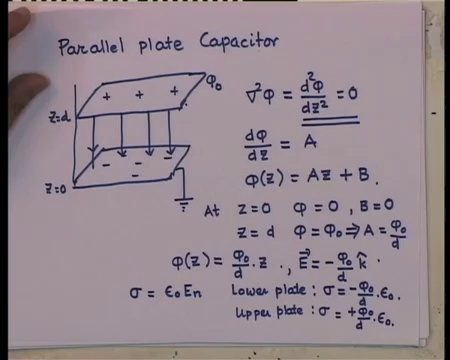 Parallel plate Capacitor
+ + + φ₀
z=d
- - -
- -
z=0
∇²φ = d²φ/dz² = 0
dφ/dz = A
φ(z) = Az + B.
At z=0 φ=0, B=0
z=d φ=φ₀ ⇒ A = φ₀/d
φ(z) = φ₀/d . z ., E⃗ = -φ₀/d k̂
σ = ε₀En Lower plate : σ = -φ₀/d . ε₀.
Upper plate : σ = +φ₀/d . ε₀.